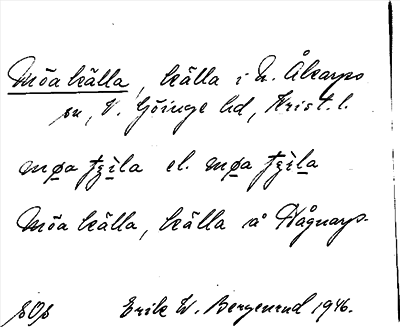 Möa källa, källa i N. Åkarps
sn, V. Göinge hd, Krist. l.
møa
el. møa
Möa källa, källa å Hågnarps-
Erik W. Bergenrud 1946.